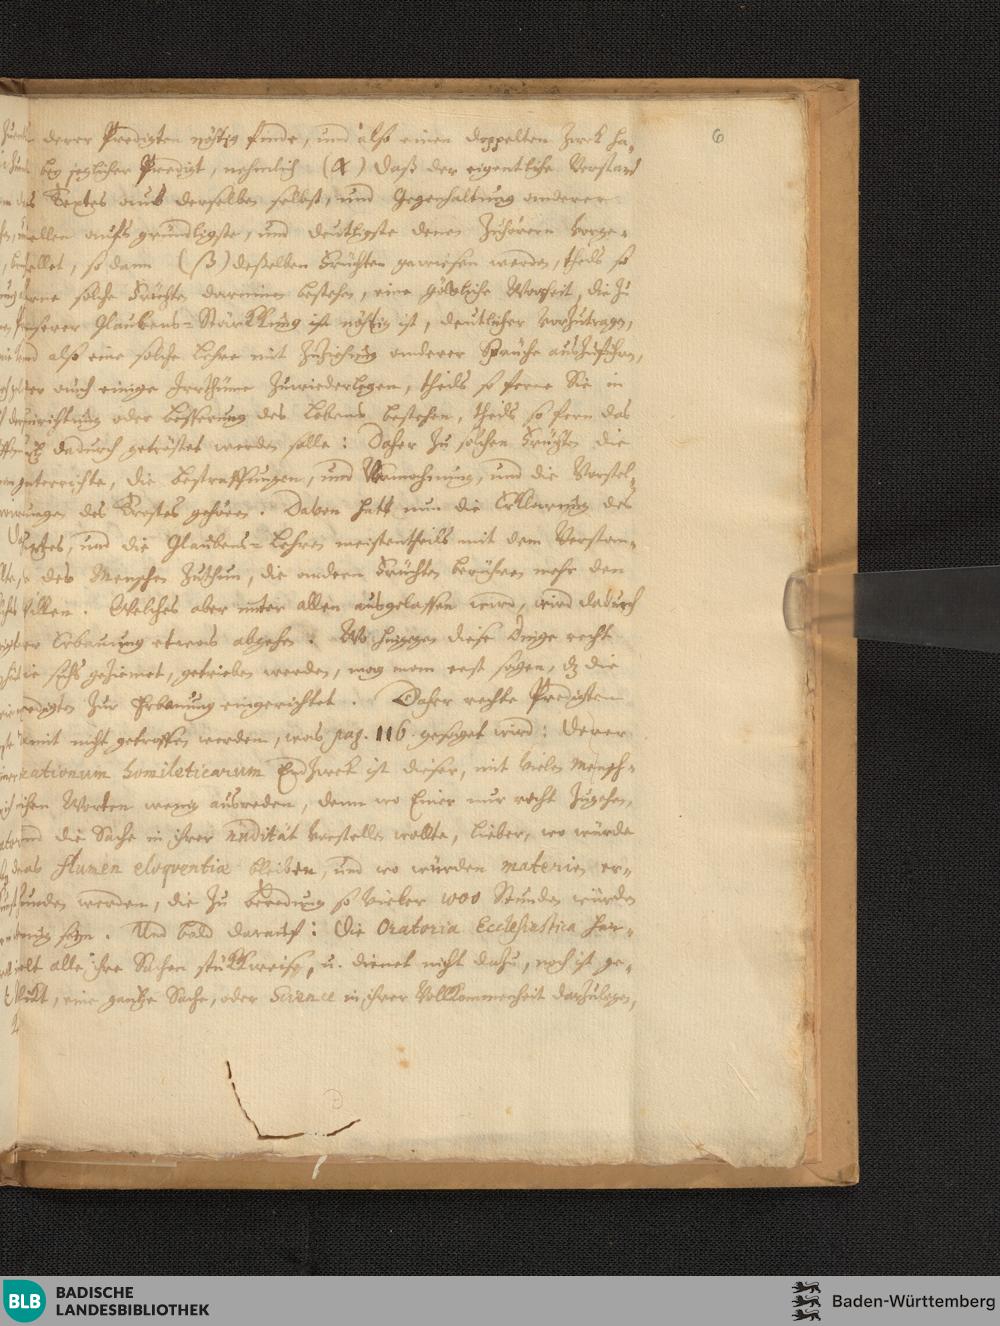 6
derer Predigten nöthig finde, und also einen doppelten Zweck ha-
bey jeglicher Predigt, nehmlich (α) daß der eigentliche Verstand
des Textes aus derselben selbst, und Gegenhaltung anderer
Stellen aufs gründligste, und deutligste denen Zuhörern vorge-
stellet, so dann (β) deßelben Früchten gewiesen werden, theils so
ferne solche Früchte darinnen bestehen, eine göttliche Warheit, die zu
unserer Glaubens-Stärkkung ist nöthig ist, deutlicher vorzutragen,
und also eine solche Lehre mit Zuziehung anderer Sprüche auszuführen,
oder auch einige Irrthüme zuwiederlegen, theils so ferne Sie in
Einrichtung oder Besserung des Lebens bestehen, theils so fern das
dadurch getröstet werden solle: Daher zu solchen Früchten die
Unterrichte, die Bestraffungen, und Vermahnung, und die Vorstel-
lungen des Trostes gehören. Davon hatt nun die Erklärung des
Textes, und die Glaubens-Lehren meistentheils mit dem Verstan-
de des Menschen zuthun, die andern Früchten berühren mehr den
Willen. Welches aber unter allen ausgelassen wird, wird dadurch
der Erbauung etwas abgehen. Wo hingegen diese Dinge recht
wie sichs geziemet, getrieben werden, mag man erst sagen, dz die
Predigten zur Erbauung eingerichtet. Daher rechte Predigten
damit nicht getroffen werden, was pag. 116. gesaget wird: Derer
orationum homileticarum Endzweck ist dieser, mit vielen mensch-
lichen Worten wenig ausreden, denn wo Einer nur recht zugehen,
und die Sache in ihrer nudität vorstellen wollte, lieber, wo würde
das flumen eloqventiæ bleiben, und wo würden materien er-
funden werden, die zu beredung so vieler 100 Stunden würden
wenig seyn. Und bald darauf: Die Oratoria Ecclesiastica han-
delt alle ihre Sachen stükkweise, u. dienet nicht dazu, noch ist ge-
schikt, eine gantze Sache, oder Science in ihrer Vollkommenheit darzulegen,
BLB BADISCHE
LANDESBIBLIOTHEK
Baden-Württemberg